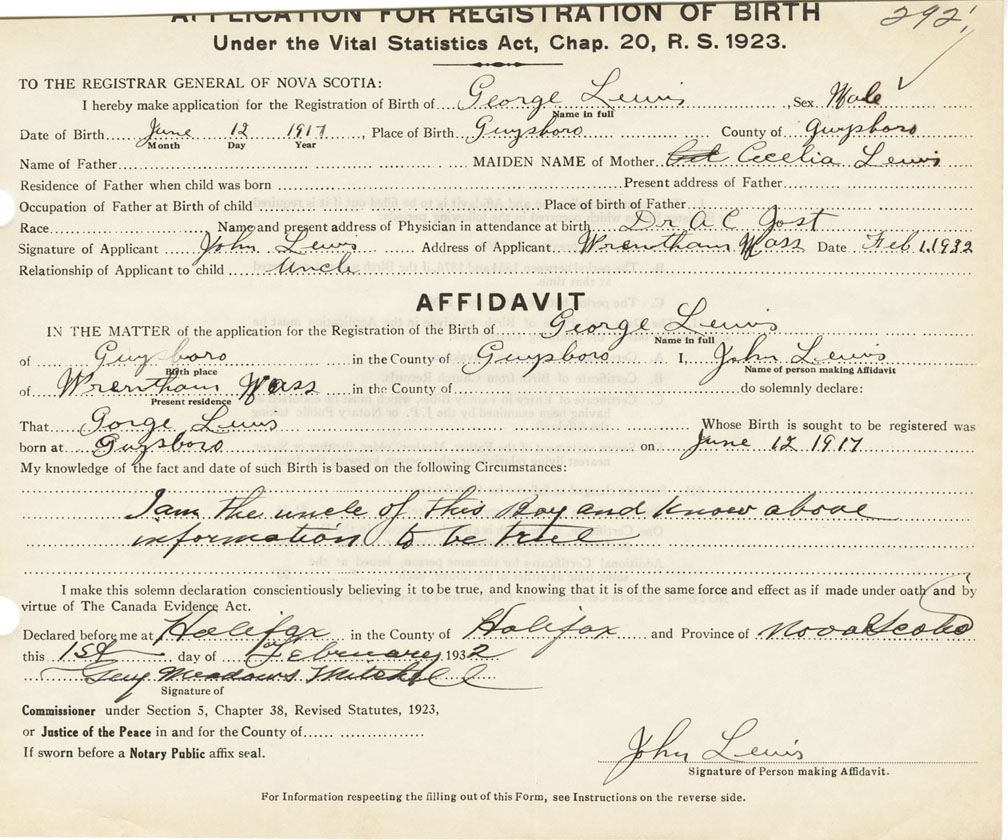 APPLICATION FOR REGISTRATION OF BIRTH
Under the Vital Statistics Act, Chap. 20, R. S. 1923.
TO THE REGISTRAR GENERAL OF NOVA SCOTIA:
I hereby make application for the Registration of Birth of George Lewis, Sex Male
Name in full
Date of Birth June 12 1917, Place of Birth Guysboro County of Guysboro
Month Day Year
Name of Father MAIDEN NAME of Mother Cecelia Lewis
Residence of Father when child was born Present address of Father
Occupation of Father at Birth of child Place of birth of Father
Race Name and present address of Physician in attendance at birth Dr A C Jost
Signature of Applicant John Lewis Address of Applicant Wrentham Mass Date Feb 1. 1932
Relationship of Applicant to child Uncle
AFFIDAVIT
IN THE MATTER of the application for the Registration of the Birth of George Lewis
Name in full
of Guysboro in the County of Guysboro I, John Lewis
Birth place Name of person making Affidavit
of Wrentham Mass in the County of do solemnly declare:
Present residence
That Gorge Lewis Whose Birth is sought to be registered was
born at Guysboro on June 12 1917
My knowledge of the fact and date of such Birth is based on the following Circumstances:
I am the uncle of this Boy and know above
information to be true
I make this solemn declaration conscientiously believing it to be true, and knowing that it is of the same force and effect as if made under oath and by
virtue of The Canada Evidence Act.
Declared before me at Halifax in the County of Halifax and Province of Nova Scotia
this 1st day of February 1932
Guy Meadows Mitchell
Signature of
Commissioner under Section 5, Chapter 38, Revised Statutes, 1923,
or Justice of the Peace in and for the County of
If sworn before a Notary Public affix seal.
John Lewis
Signature of Person making Affidavit.
For Information respecting the filling out of this Form, see Instructions on the reverse side.